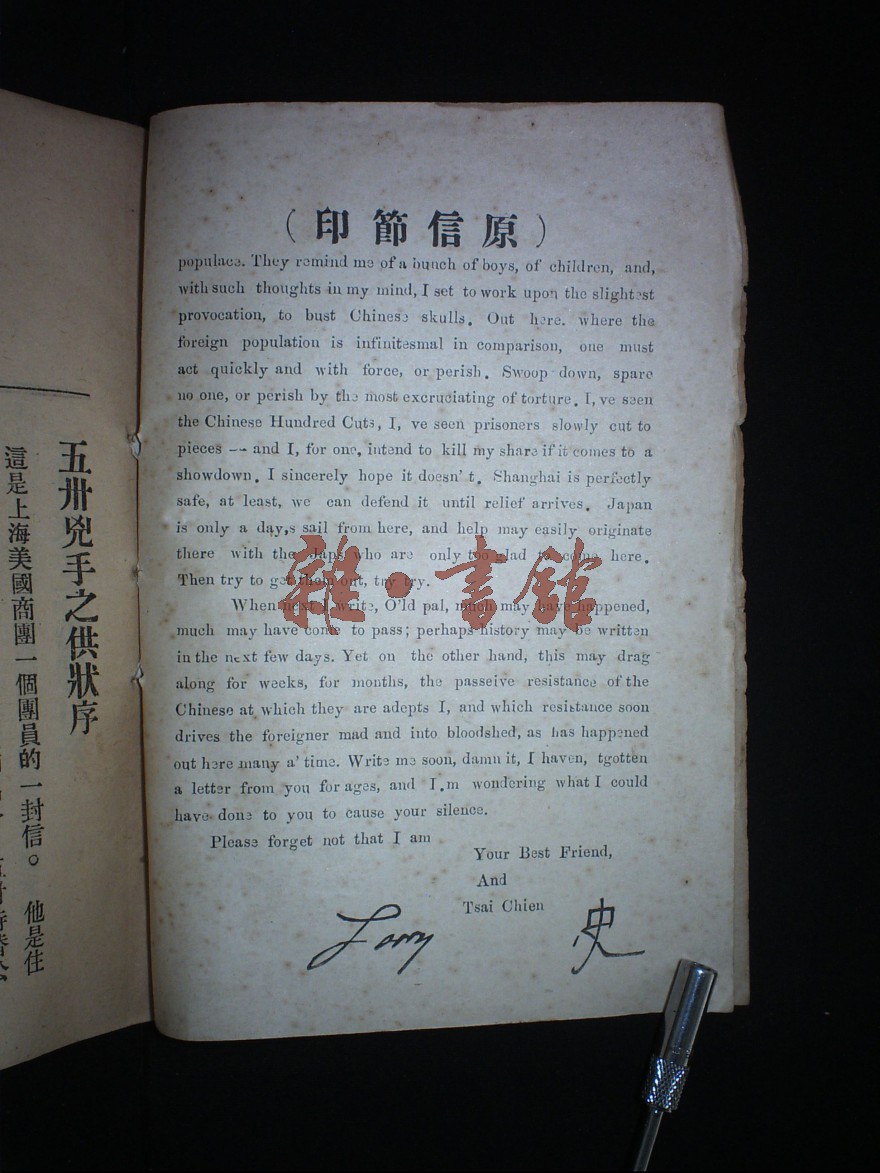 （原信節印）
populace. They remind me of a bunch of boys, of children, and,
with such thoughts in my mind, I set to work upon the slightest
provocation, to bust Chinese skulls. Out here. where the
foreign population is infinitesmal in comparison, one must
act quickly and with force, or perish. Swoop down, spare
no one, or perish by the most excruciating of torture. I, ve seen
the Chinese Hundred Cuts, I, ve seen prisoners slowly cut to
pieces -- and I, for one, intend to kill my share if it comes to a
showdown. I sincerely hope it doesn' t. Shanghai is perfectly
safe, at least, we can defend it until relief arrives. Japan
is only a day,s sail from here, and help may easily originate
there with the Japs who are only too glad to come here.
Then try to get them out, try try.
When next I write, O'ld pal, much may have happened,
much may have come to pass; perhaps history may be written
in the next few days. Yet on the other hand, this may drag
along for weeks, for months, the passeive resistance of the
Chinese at which they are adepts I, and which resistance soon
drives the foreigner mad and into bloodshed, as has happened
out here many a' time. Write me soon, damn it, I haven, tgotten
a letter from you for ages, and I.m wondering what I could
have done to you to cause your silence.
Please forget not that I am
Your Best Friend,
And
Tsai Chien
Larry 史
五卅兇手之供狀序
這是上海美國商團一個團員的一封信。他是住
雜·書館